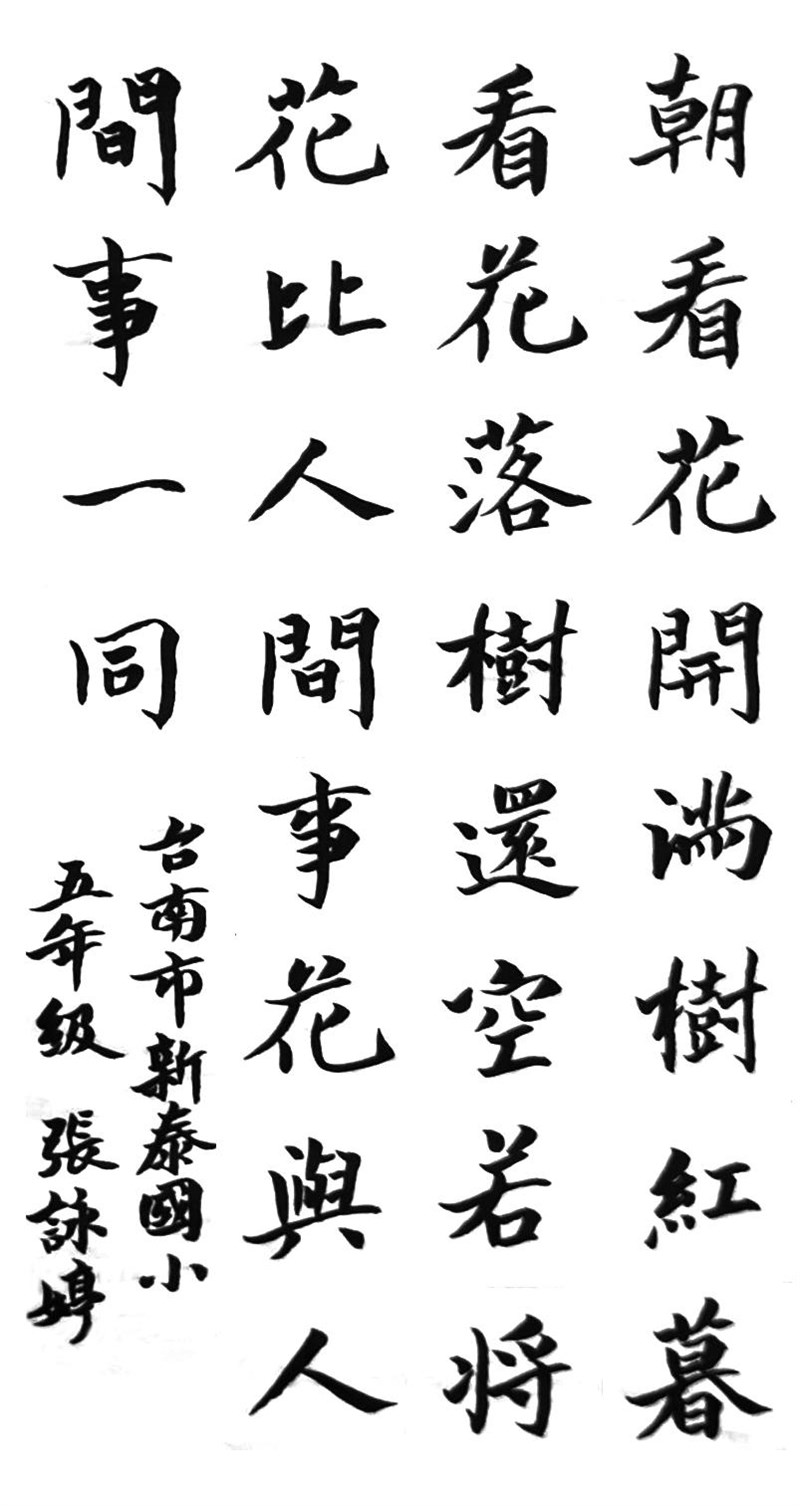 朝看花開滿樹紅暮
看花落樹還空若將
花比人間事花與人
間事一同
台南市新泰國小
五年級 張詠婷